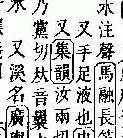 水注聲馬融長笛
又手足液也
又集韻汝兩切
乃黨切𠀤音曩
水又溪名廣輿